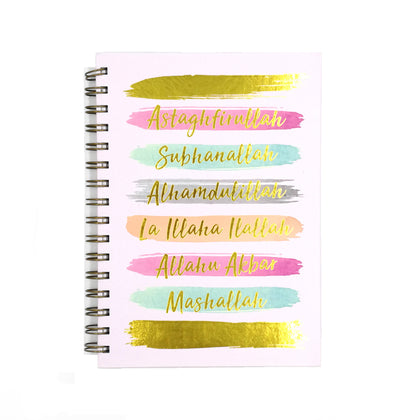 Astaghfirullah
Subhanallah
Alhamdulillah
La Illaha Ilallah
Allahu Akbar
Mashallah